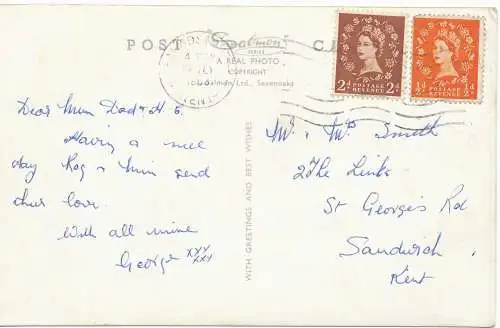 POST "Salmon" CA
SERIES
A REAL PHOTO
COPYRIGHT
Salmon Ltd., Sevenoaks
KENT
2D POSTAGE REVENUE 2D
½D POSTAGE REVENUE ½D
Dear Mum Dad & H.
Having a nice
day Reg & Mim send
their love.
With all mine
George xxx
xxx
WITH GREETINGS AND BEST WISHES
Mr. & Mrs Smith
2 The Links
St George's Rd
Sandwich
Kent